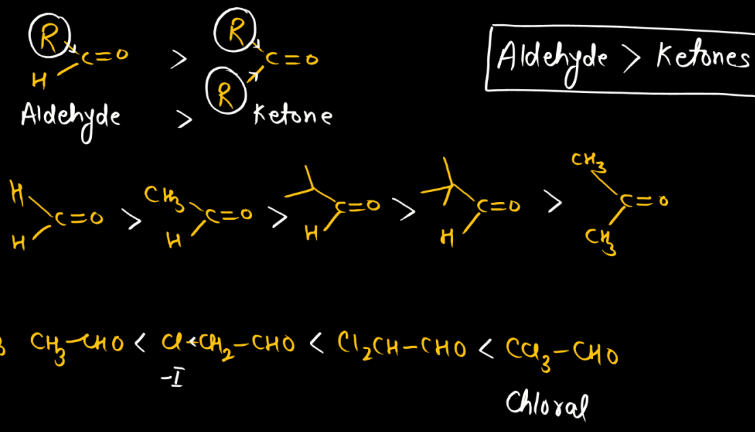 R
H C=O > R R C=O
Aldehyde > Ketone
Aldehyde > Ketones
H H C=O > CH₃ H C=O > H C=O > H C=O > CH₃ CH₃ C=O
CH₃-CHO < Cl←CH₂-CHO < Cl₂CH-CHO < CCl₃-CHO
-I
Chloral